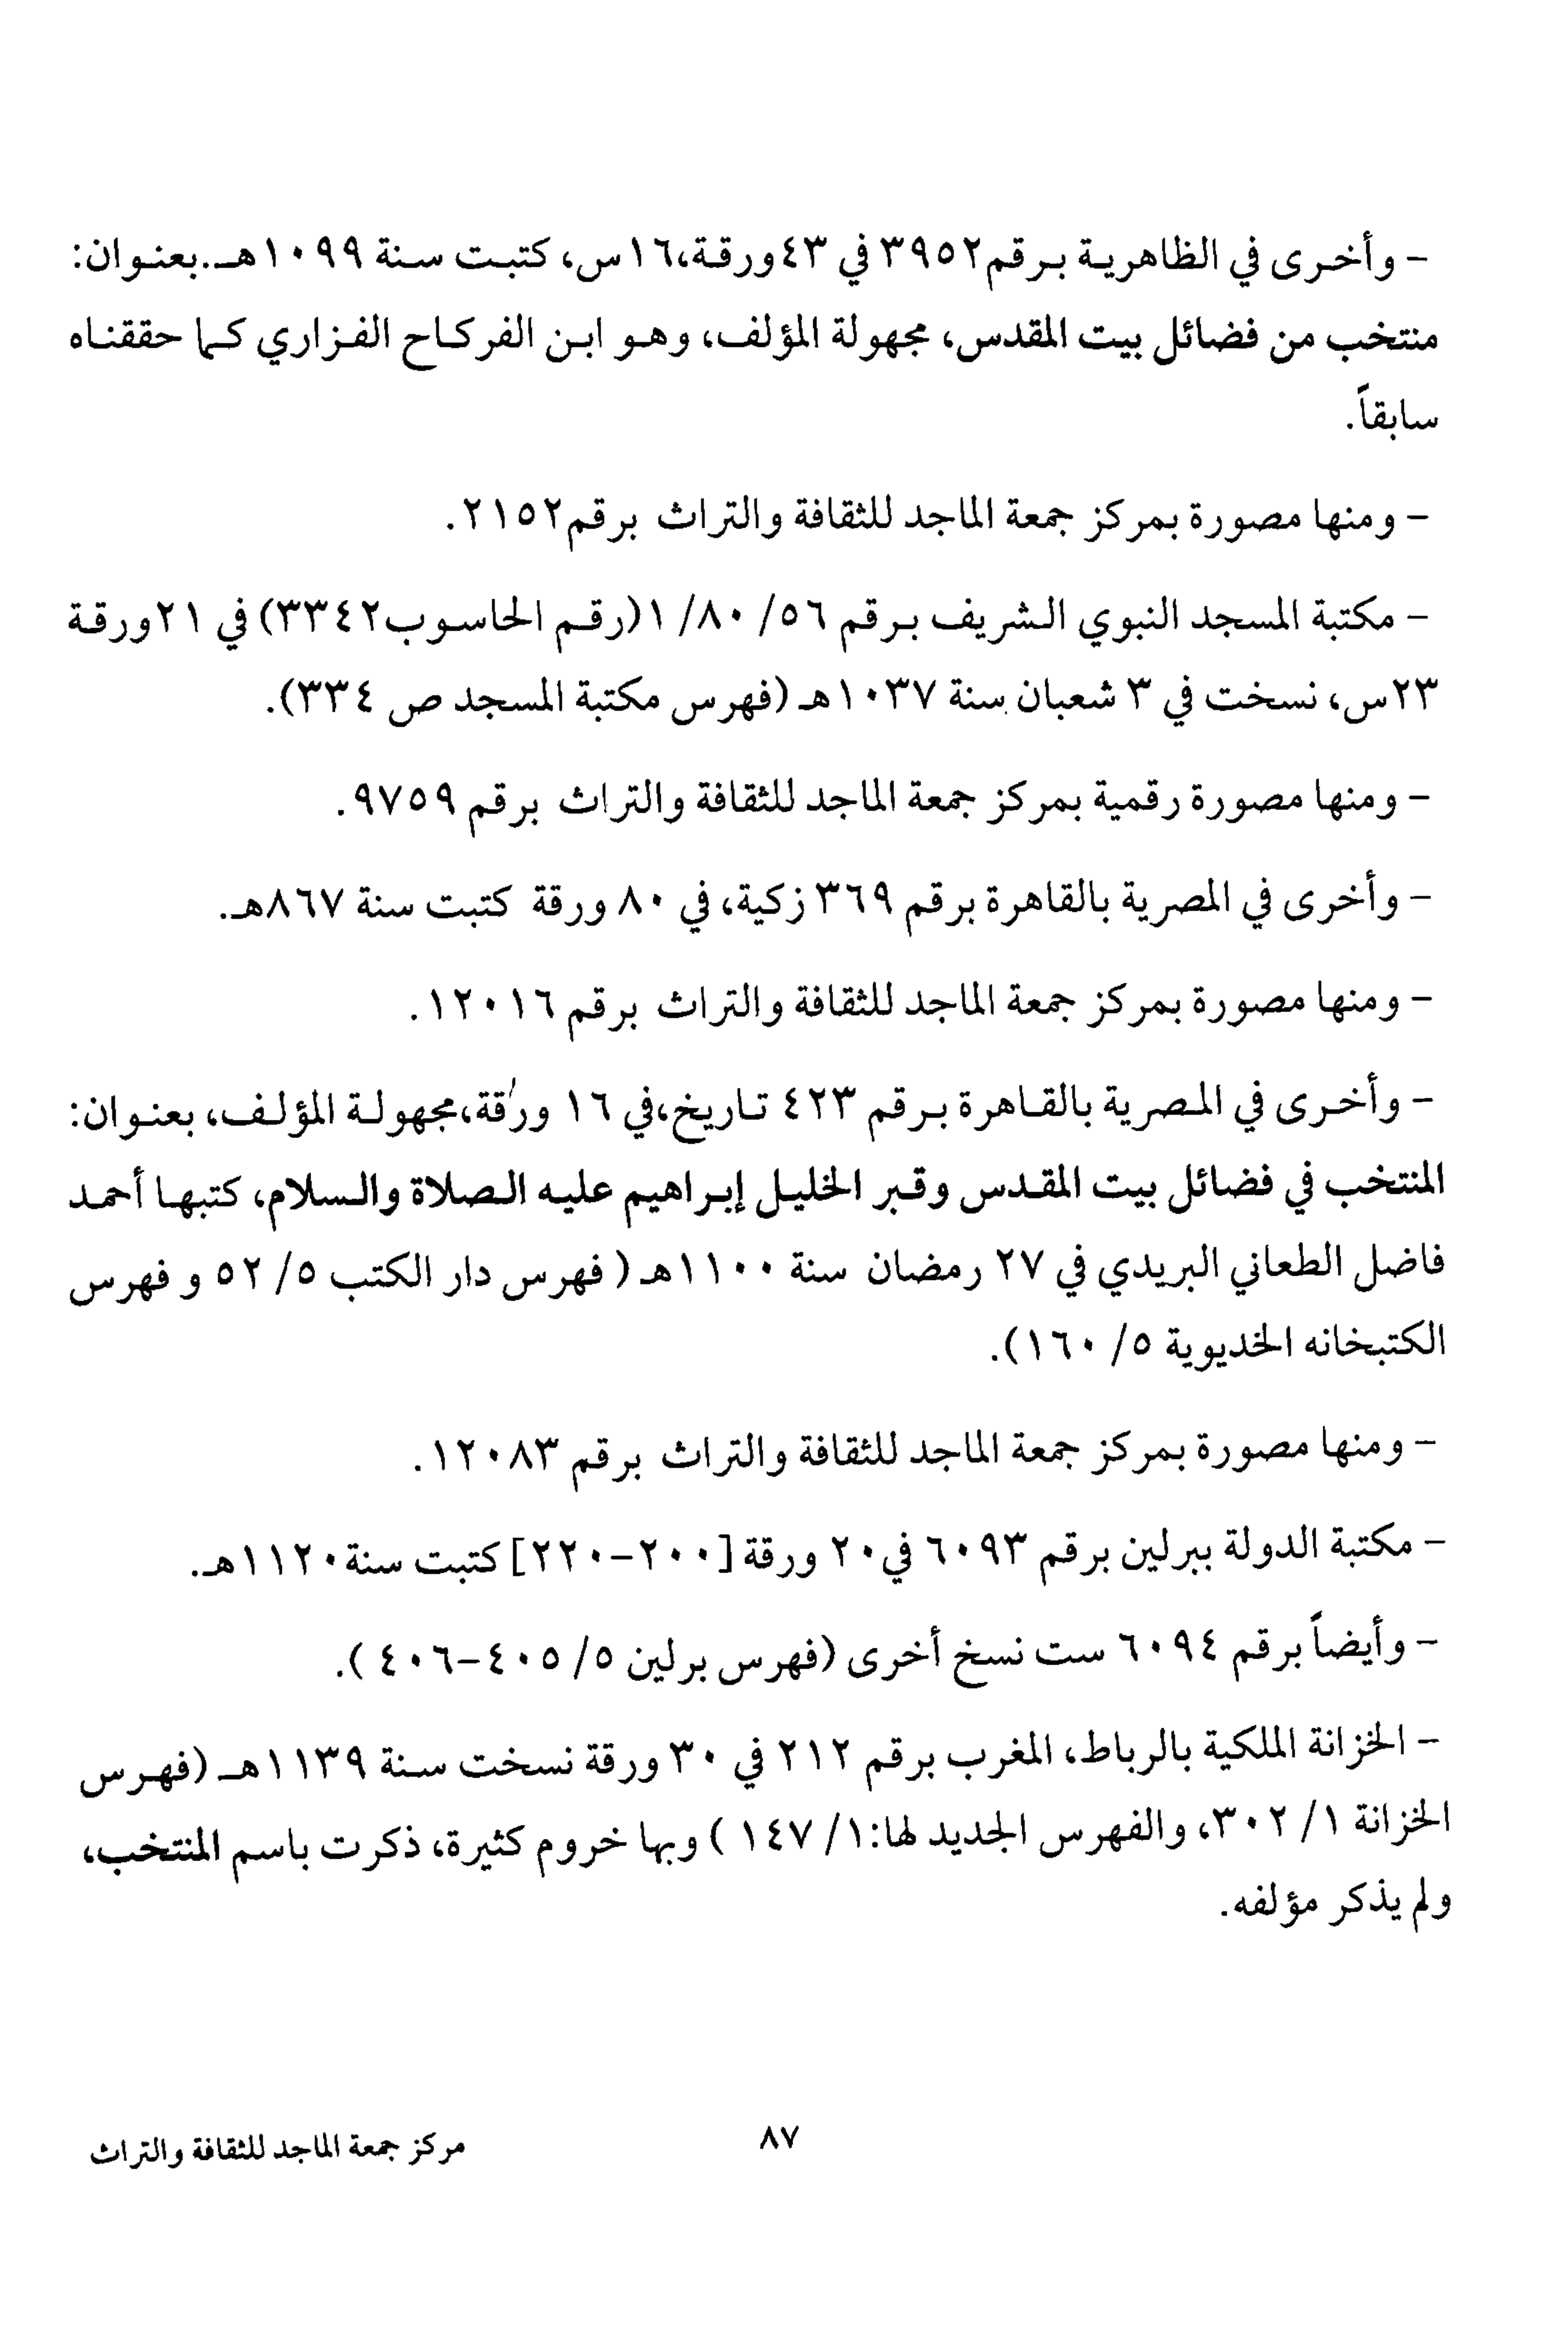 - وأخرى في الظاهرية برقم٣٩٥٢ في ٤٣ورقة،١٦س، كتبت سنة ١٠٩٩هـ.بعنوان:
منتخب من فضائل بيت المقدس، مجهولة المؤلف، وهو ابن الفركاح الفزاري كما حققناه
سابقاً.
- ومنها مصورة بمركز جمعة الماجد للثقافة والتراث برقم٢١٥٢.
- مكتبة المسجد النبوي الشريف برقم ٥٦/ ٨٠/ ١(رقم الحاسوب٣٣٤٢) في ٢١ورقة
٢٣س، نسخت في ٣ شعبان سنة ١٠٣٧هـ (فهرس مكتبة المسجد ص ٣٣٤).
- ومنها مصورة رقمية بمركز جمعة الماجد للثقافة والتراث برقم ٩٧٥٩.
- وأخرى في المصرية بالقاهرة برقم ٣٦٩ زكية، في ٨٠ ورقة كتبت سنة ٨٦٧هـ.
- ومنها مصورة بمركز جمعة الماجد للثقافة والتراث برقم ١٢٠١٦.
- وأخرى في المصرية بالقاهرة برقم ٤٢٣ تاريخ،في ١٦ ورقة،مجهولة المؤلف، بعنوان:
المنتخب في فضائل بيت المقدس وقبر الخليل إبراهيم عليه الصلاة والسلام، كتبها أحمد
فاضل الطعاني البريدي في ٢٧ رمضان سنة ١١٠٠هـ ( فهرس دار الكتب ٥/ ٥٢ و فهرس
الكتبخانه الخديوية ٥/ ١٦٠).
- ومنها مصورة بمركز جمعة الماجد للثقافة والتراث برقم ١٢٠٨٣.
- مكتبة الدولة ببرلين برقم ٦٠٩٣ في٢٠ ورقة [٢٠٠-٢٢٠] كتبت سنة١١٢٠هـ.
- وأيضاً برقم ٦٠٩٤ ست نسخ أخرى (فهرس برلين ٥/ ٤٠٥-٤٠٦ ).
- الخزانة الملكية بالرباط، المغرب برقم ٢١٢ في ٣٠ ورقة نسخت سنة ١١٣٩هـ (فهرس
الخزانة ١/ ٣٠٢، والفهرس الجديد لها:١/ ١٤٧ ) وبها خروم كثيرة، ذكرت باسم المنتخب،
ولم يذكر مؤلفه.
٨٧
مركز جمعة الماجد للثقافة والتراث